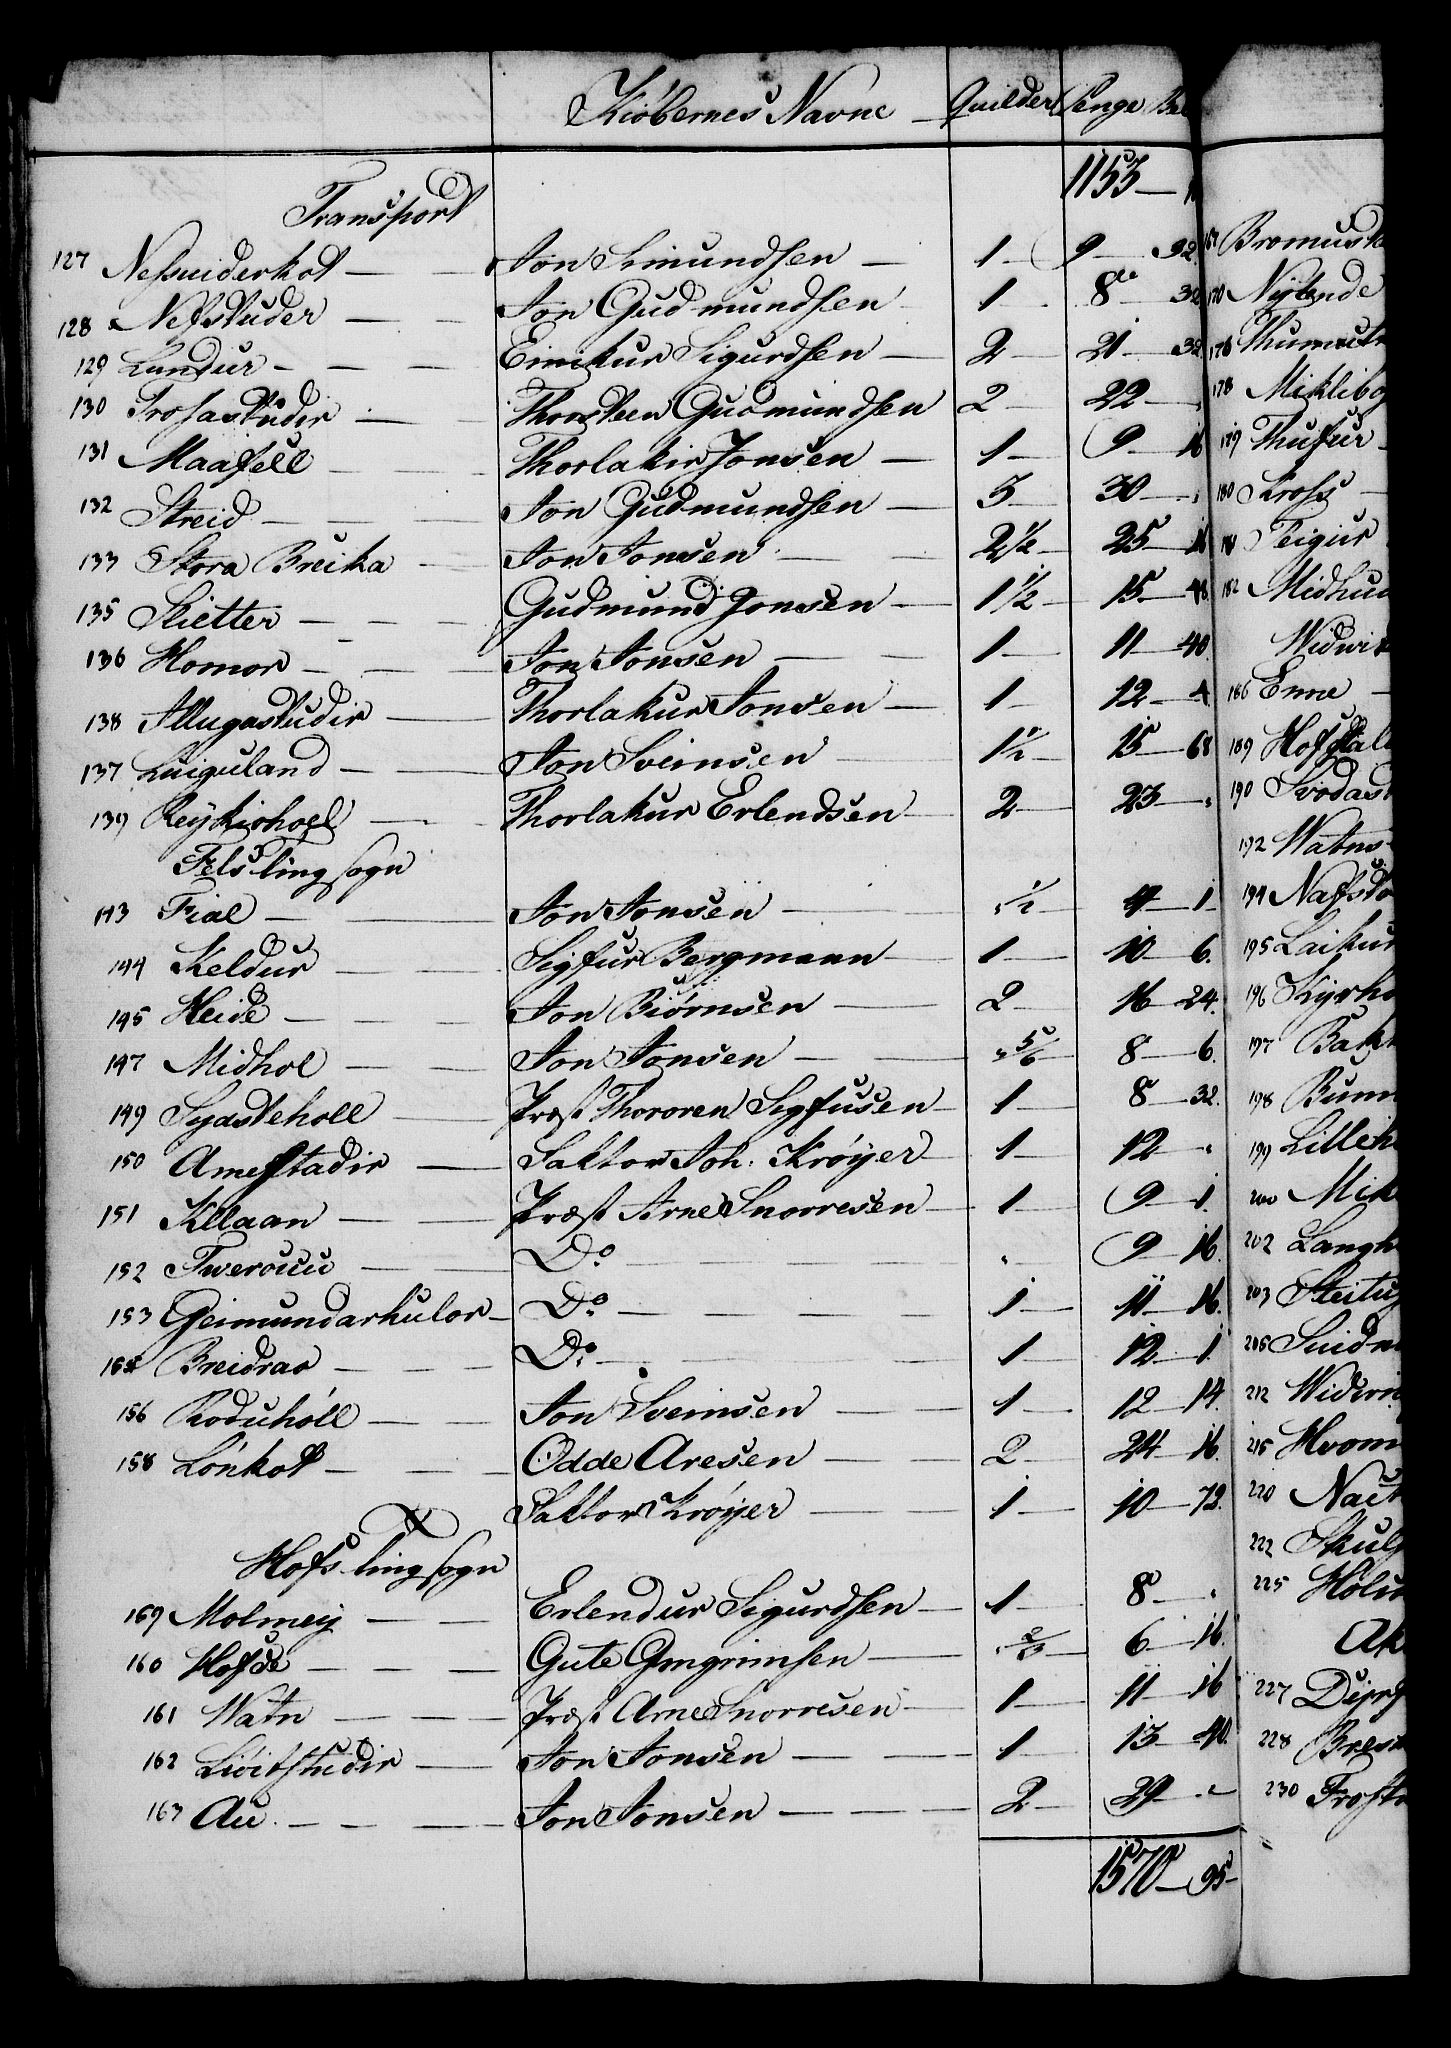 Kiøbernes Navne Quilder Penge Bel
Transport 1153
127 Nefsniderkot Jon Simundsen 1 9 92
128 Nefstuder Jon Gudmundsen 1 8 32
129 Lundur Eirikur Sigurdsen 2 21 32
130 Trofastudir Thorsteen Gudmundsen 2 22
131 Maafell Thorlakir Jonsen 1 9 16
132 Streid Jon Gudmundsen 3 30
133 Stora Breika Jon Jonsen 2½ 25 16
135 Skietter Gudmund Jonsen 1½ 15 48
136 Homor Jon Jonsen 1 11 40
138 Illugastudir Thorlakur Jonsen 1 12 4
137 Luiguland Jon Sveinsen 1½ 15 68
139 Reykiohoel Thorlakur Erlendsen 2 23
Fels ting sogn
143 Fial Jon Jonsen ½ 4 1
144 Keldur Sigfur Bergmann 1 10 6
145 Heide Jon Biørnsen 2 16 24
147 Midhol Jon Jonsen 5/6 8 6
149 Sydsteholl Præst Thororen Sigfusen 1 8 32
150 Arnestadir Faktor Joh. Krøyer 1 12
151 Kllaan Præst Arne Snorresen 1 9 1
152 Twerouu Do 9 16
153 Geimundarhulor Do 1 11 16
154 Breidrao Do 1 12 1
156 Roduhóll Jon Sveinsen 1 12 14
158 Lónkot Odde Aresen 2 24 16
Faktor Krøyer 1 10 72
Hofs ting sogn
159 Molmeij Erlendur Sigurdsen 1 8
160 Hofde Gute Gmgrimsen 2/3 6 16
161 Watn Præst Arne Snorresen 1 11 16
162 Lióitstudir Jon Jonsen 1 13 40
163 Au Jon Jonsen 2 29
1570 95
Bromusk
170 Nylende
176
178 Miklibo
179 Thufur
180 Kross
181 Teigur
182 Midhu
Widwik
186 Enne
189 Hofstal
190 Svodas
192 Watns
194 Nafsto
195 Laikur
196 Kyrho
197 Bakk
198 Bunn
199 Lillek
200 Mik
202 Langh
203 Steitu
206 Suidn
212 Widwi
215 Hvom
220 Naut
222 Skulf
225 Holu
Ak
227 Dipr
228 Bres
230 Frosto